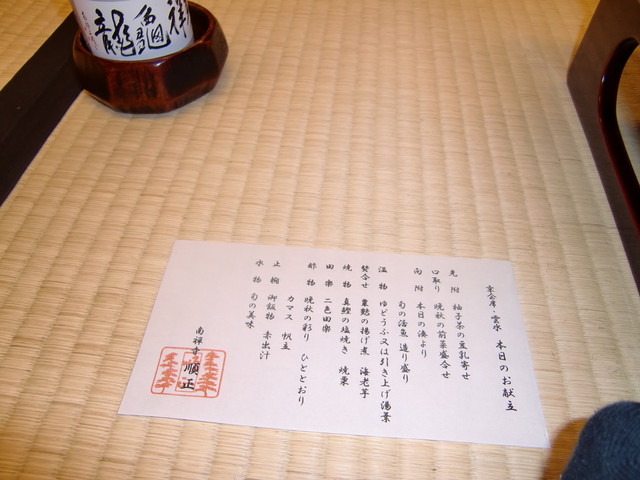 祥
龜
龍
京会席・雲水 本日のお献立
先附 柚子茶の豆乳寄せ
口取り 晩秋の前菜盛合せ
向附 本日の湊より
旬の活魚 造り盛り
温物 ゆどうふ又は引き上げ湯葉
焚合せ 粟麩の揚げ煮 海老芋
焼物 真鰹の塩焼き 焼栗
田楽 二色田楽
酢物 晩秋の彩り ひととおり
カマス 帆立
止椀 御飯物 赤出汁
水物 旬の美味
南禅寺 順正